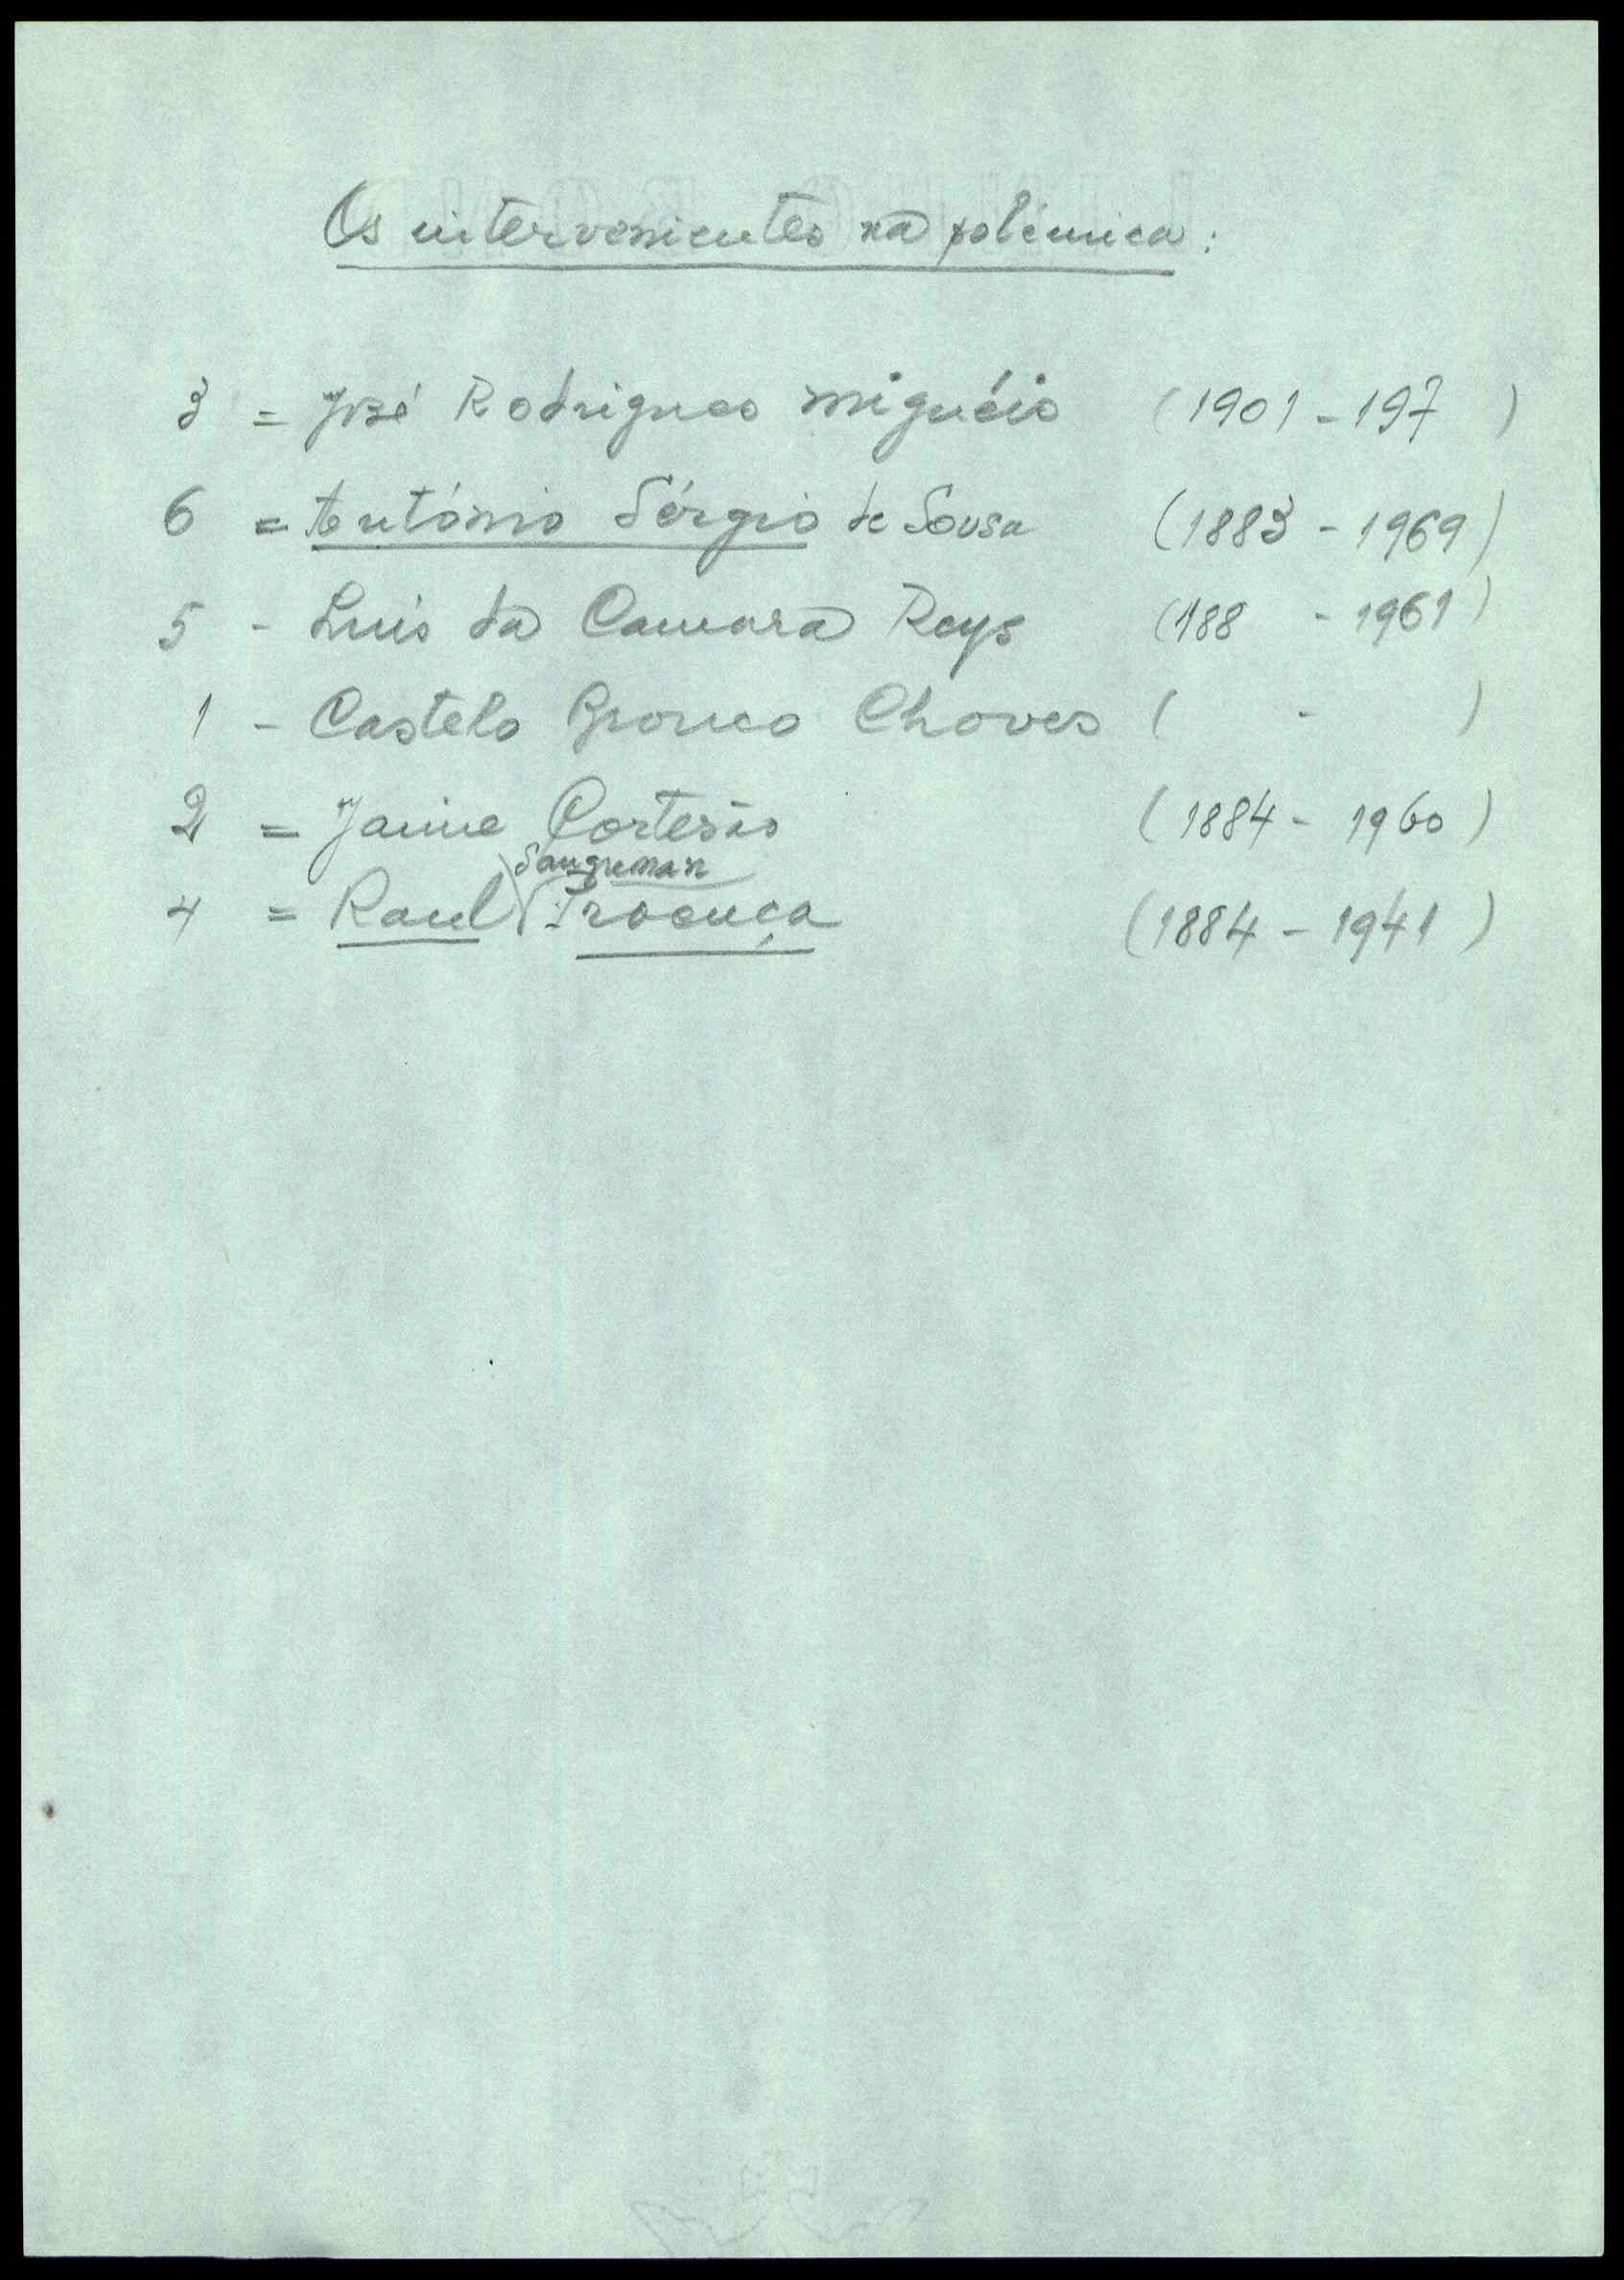 Os intervenientes na polémica:
3 = José Rodrigues Miguéis (1901 - 197 )
6 = António Sérgio de Sousa (1883 - 1969)
5 - Luis da Camara Reys (188 - 1961)
1 - Castelo Branco Chaves ( - )
2 = Jaime Cortesão (1884 - 1960)
Sangreman
4 = Raul Proença (1884 - 1941)